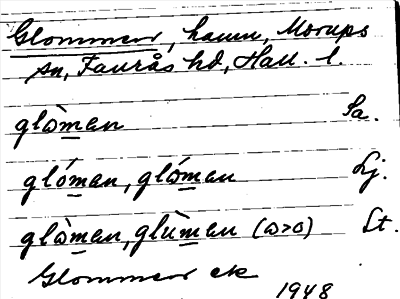 Glommen, hamn, Morups
sn, Faurås hd, Hall. l.
glòman Sa.
glóman, glóman Lj.
glòman, glùman (ω>o) St.
Glommen ek
1948